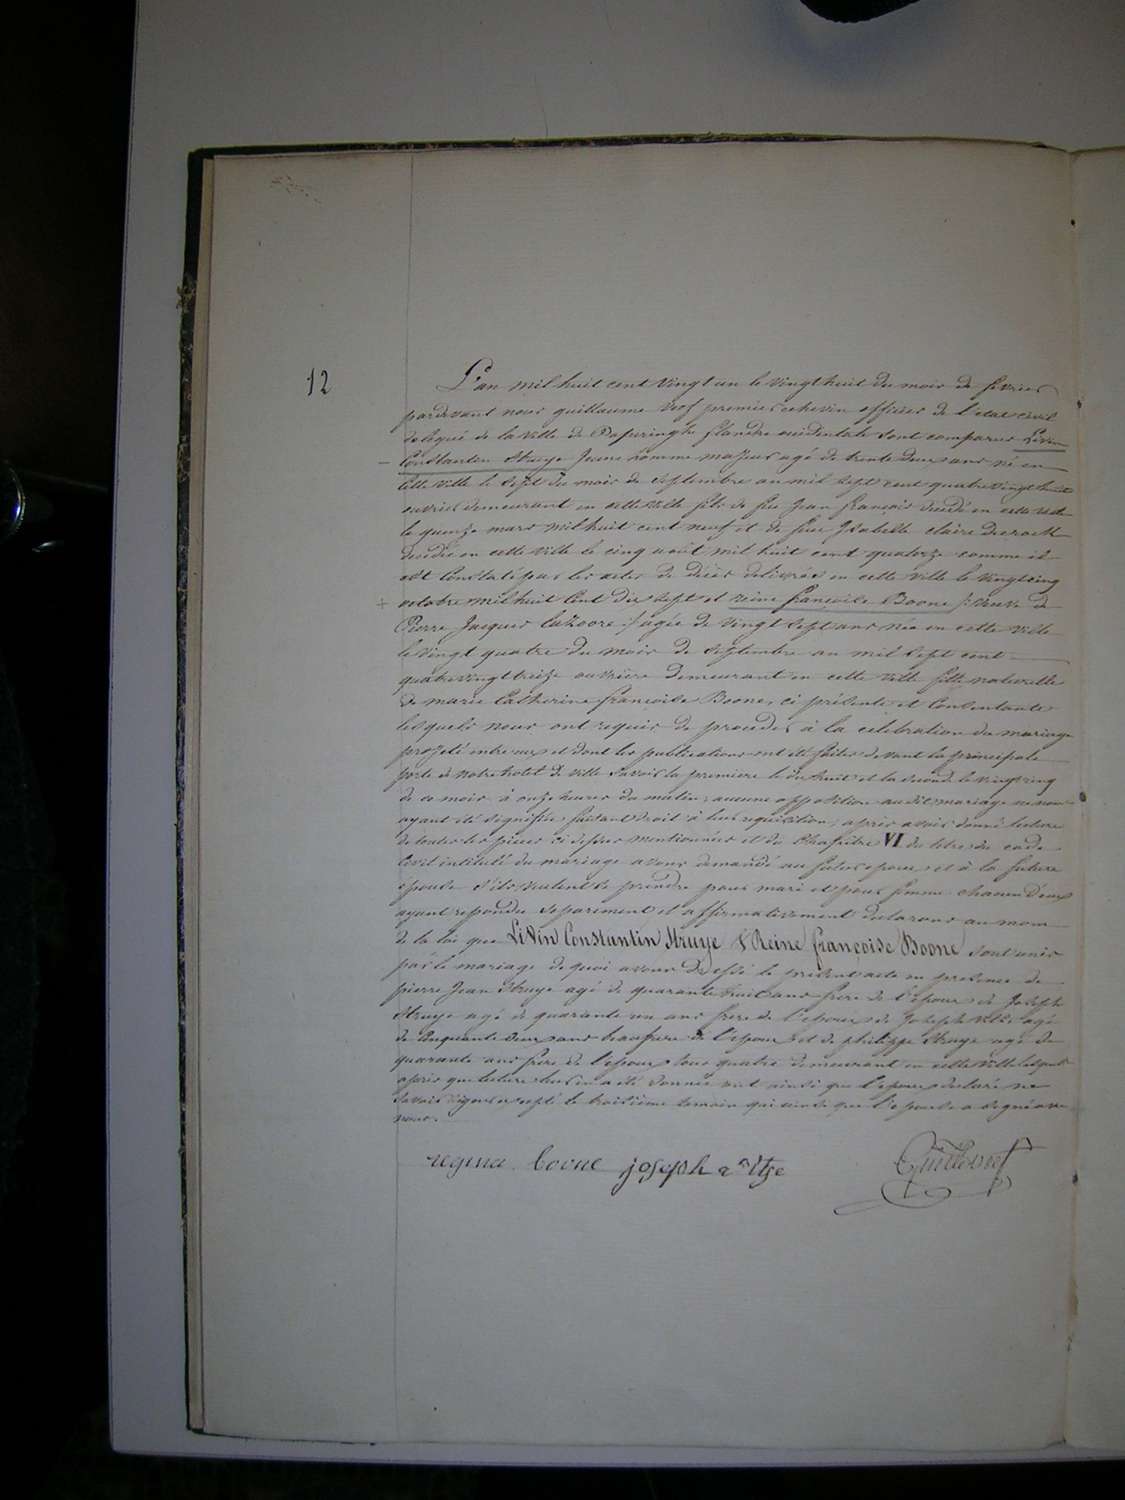 12
L'an mil huit cent vingt un le vingt huit du mois de fevrier
pardevant nous guillaume premier echevin officier de l'etat civil
delegué de la ville de Poperinghe flandre occidentale sont comparus Livin
Constantin Struye jeune homme majeur agé de trente deux ans né en
cette ville le sept du mois de septembre an mil sept cent quatre vingt huit
ouvrier demeurant en cette ville fils de feu Jean françois decedé en cette ville
le quinze mars mil huit cent neuf et de feue Isabelle claire
decedée en cette ville le cinq août mil huit cent quatorze comme il
est constaté par les actes de décès delivrés en cette ville le vingt cinq
octobre mil huit cent dix sept et reine françoise Boone /: veuve de
Pierre Jacques :/ agée de vingt sept ans née en cette ville
le vingt quatre du mois de septembre an mil sept cent
quatre vingt treize ouvrière demeurant en cette ville fille naturelle
de marie Catherine françoise Boone, ci présente et consentante
lesquels nous ont requis de proceder à la celebration du mariage
projeté entre eux et dont les publications ont été faites devant la principale
porte de notre hotel de ville savoir la premiere le dix huit et la seconde le vingt cinq
de ce mois à onze heures du matin, aucune opposition au dit mariage ne nous
ayant été signifiée faisant droit à leur requisition, apres avoir donné lecture
de toutes les pieces ci dessus mentionnées et du chapitre VI du titre du code
civil intitulé du mariage avons demandé au futur epoux et à la future
épouse s'ils veulent se prendre pour mari et pour femme chacun d'eux
ayant repondu separement et affirmativement declarons au nom
de la loi que Livin Constantin Struye & Reine françoise Boone sont unis
par le mariage de quoi avons dressé le présent acte en presence de
pierre Jean Struye agé de quarante huit ans frere de l'epoux de Joseph
Struye agé de quarante un ans frere de l'epoux de Joseph agé
de cinquante deux ans beaufrere de l'epoux et de philippe Struye agé de
quarante ans frere de l'epoux tous quatre demeurant en cette ville lesquels
après que lecture leur en a été donnée ont ainsi que l'epoux declaré ne
savoir signer excepté le troisième temoin qui ainsi que l'epouse a signé avec
nous.
regina boone joseph